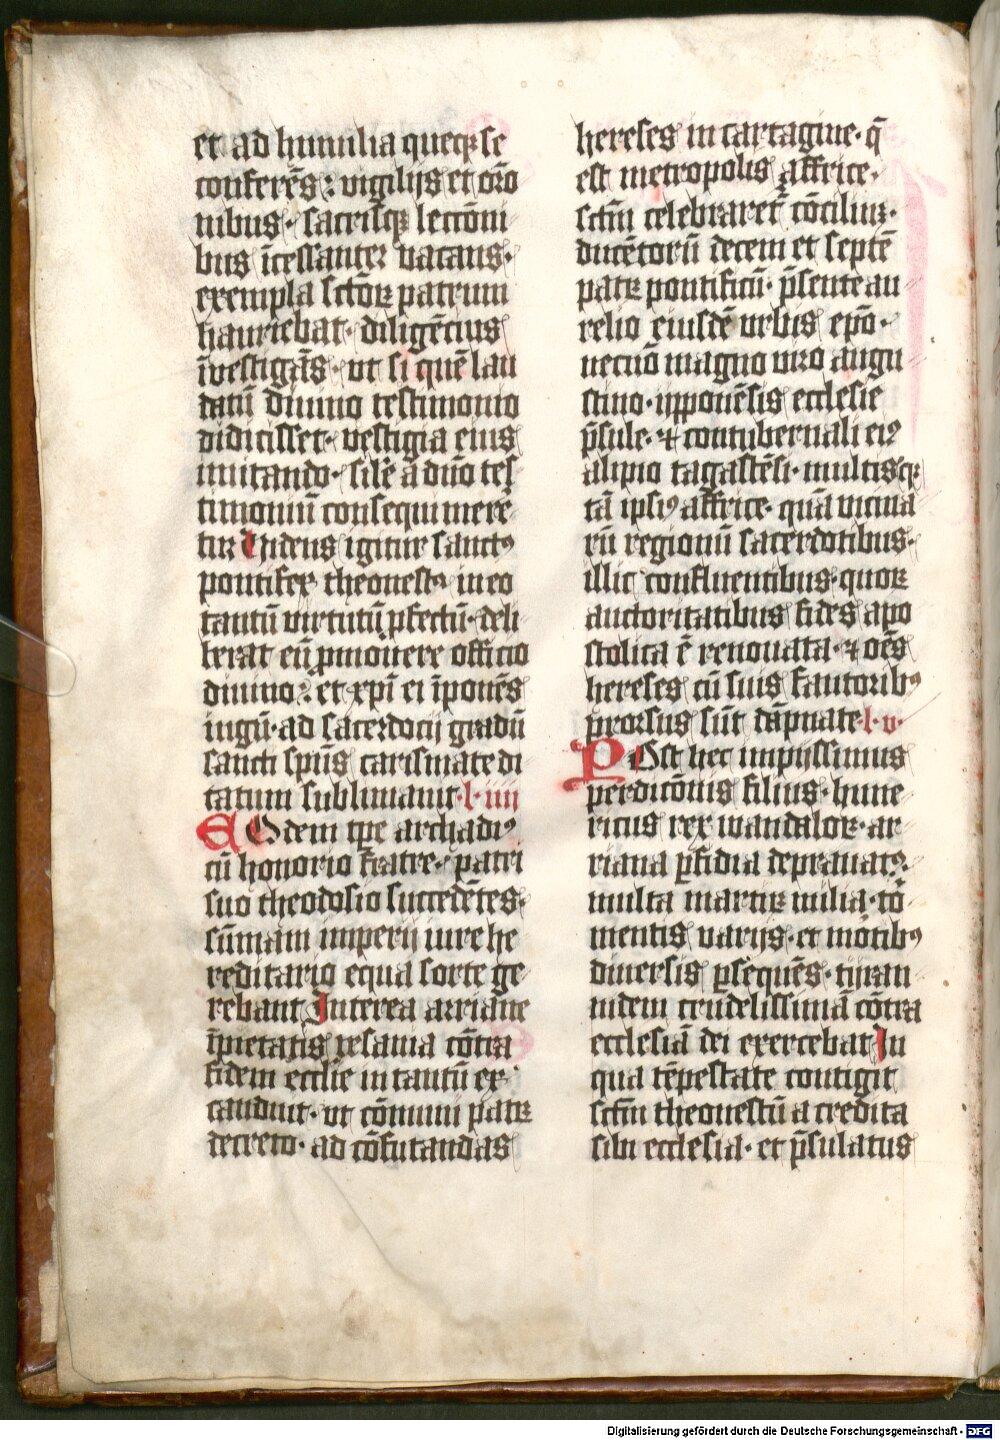 et ad humilia queqꝫ se
conferēs ⁊ vigilijs et orō
nibus · sacrisqꝫ lectōni
bus īcessanter vacans ·
exempla sctōꝝ patrum
hauriebat · diligēcius
īvestigās · vt si quē lau
datū diuino testimonio
didicisset · vestigia eius
imitando · silē a dn̄o tes
timoniū consequi merē
tur Uidens igitur sanctꝰ
pontifex theonestꝰ in eo
tantū virtutū ꝓfectū · deli
berat eū ꝓmouere officio
diuino · et xp̄i ei īponēs
iugū · ad sacerdocij gradū
sancti sp̄us carismate di
tatum sublimauit · l · iiij
EOdem tp̄e archadiꝰ
cū honorio fratre · patri
suo theodosio succedētes ·
sūmam imperij iure he
reditario equa sorte ge
rebant Interea arriane
īpietatis vesania cōtra
fidem ecclīe in tantū ex
canduit · vt cōmuni patꝝ
decreto · ad cōfutandas
hereses in cartagine · q̄
est metropolis affrice ·
sctm̄ celebraretr̄ cōciliū ·
ducētorū decem et septē
patꝝ pontificū · p̄sente au
relio eiusdē vrbis ep̄o ·
necnō magno viro augu
stino · ypponēsis ecclesie
p̄sule · ⁊ contubernali eiꝰ
alipio tagastēsi · multisqꝫ
tā ipsiꝰ affrice · quā vicina
rū regionū sacerdotibus ·
illic confluentibus · quoꝝ
auctoritatibus fides apo
stolica ē renouata · ⁊ oēs
hereses cū suis fautoribꝰ
prorsus sūt dāpnate · l · v ·
POst hec impijssimus
perdicōnis filius · hune
ricus rex wandaloꝝ · ar
riana ꝑfidia deprauatꝰ ·
multa martiꝝ milia · tō
mentis varijs · et mōtibꝰ
diuersis ꝑsequēs · tiran
nidem crudelissimā cōtra
ecclesiā dei exercebat In
qua tēpestate contigit
sctm̄ theonestū a credita
sibi ecclesia · et p̄sulatus
Digitalisierung gefördert durch die Deutsche Forschungsgemeinschaft - DFG